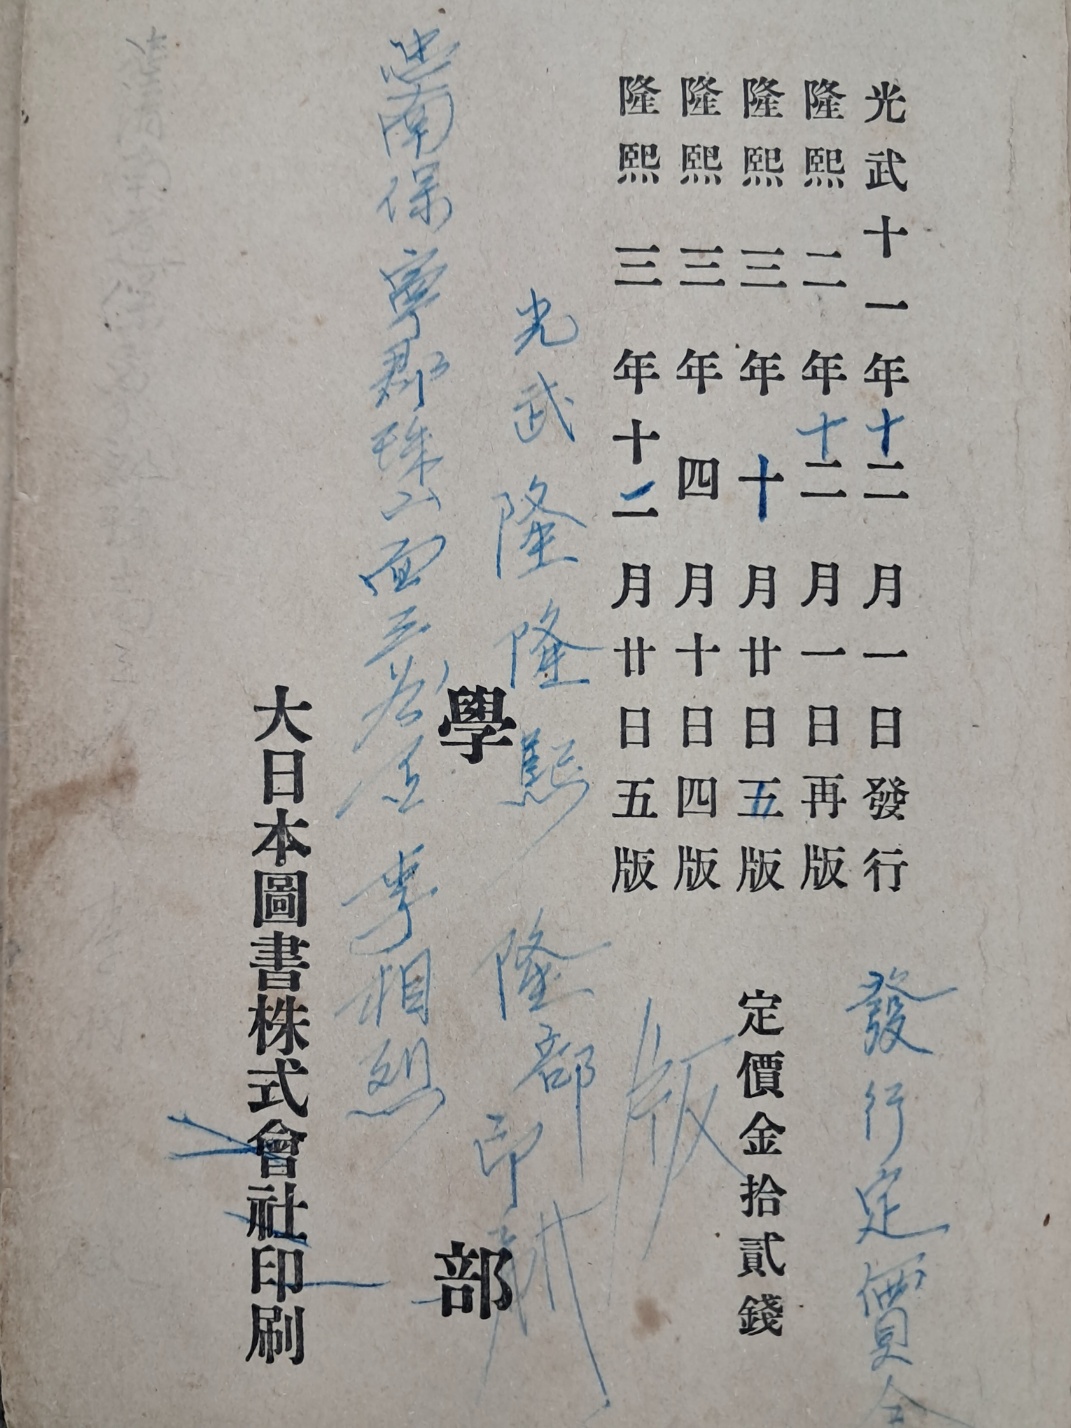 光武十一年十二月一日發行
隆熙二年十二月一日再版
隆熙三年十月廿日五版
隆熙三年四月十日四版
隆熙三年十二月廿日五版
發行定價金
定價金拾貳錢
版
光武隆隆熙隆部印
學部
忠南保寧郡珠山面 李相烈
大日本圖書株式會社印刷